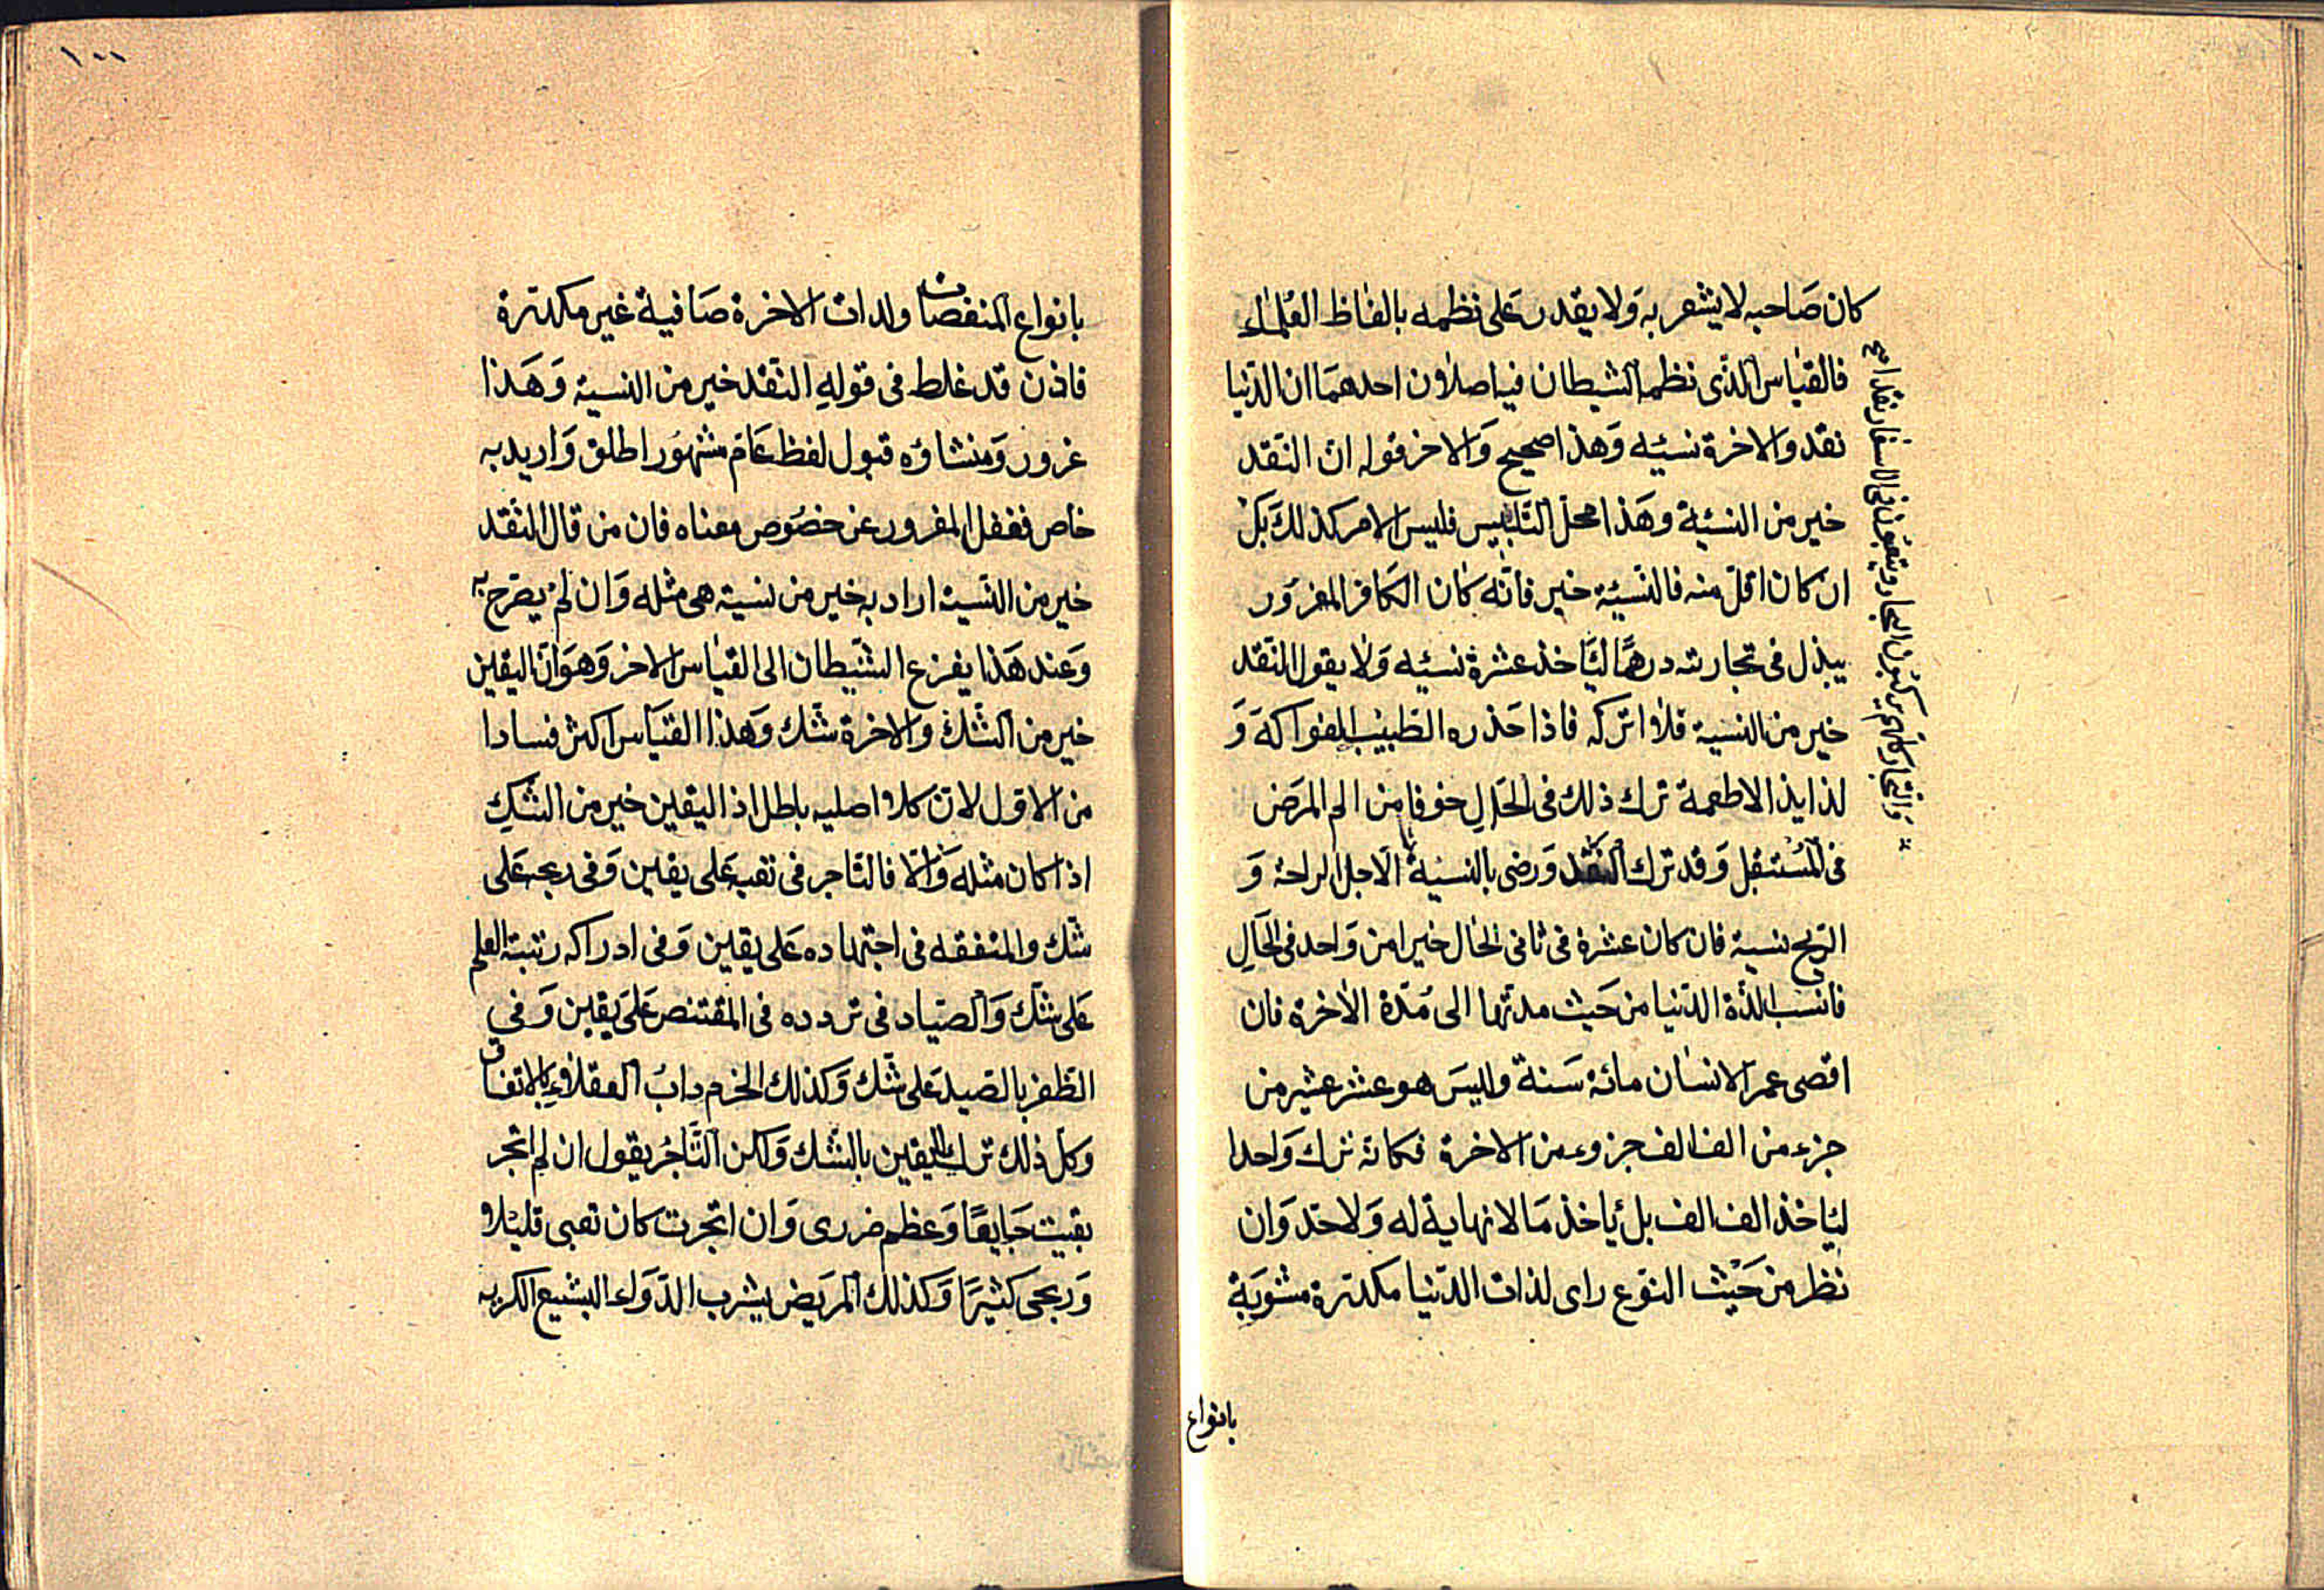 كان صَاحبه لا يشعر به وَلا يقدر عَلى نظمه بالفاظ العُلمآء
فالقياس الذّى نظمه الشيطان فيه اصلاون احدهمَا ان الدّنيا
نقد والاخرة نسيئه وَهذا صحيح وَالاخر قوله ان النّقد
خير من النسئية وهَذا محل التلبيس فليس الامر كذلك بَل
ان كان اقل منه فالنّسئية خير فانّه كان الكَافر المغرُور
يبذل فى تجارته درهمًا ليَاخذ عشرة نسئيه وَلا يقول النّقد
خير من النسية فلاو اتركه فاذا حَذره الطّبيب الفواكهَ وَ
لذايذ الاطعمة ترك ذلك فى الحَالِ خوفا من الم المرَض
فى المُستقبل وَقد ترك النقد وَرضى بالنسية الا جل الراحة وَ
الرّبح نسية فان كان عشرة فى ثانى الحال خيرا من وَاحد فى الحَالِ
فانسب لذّة الدّنيا من حَيث مدتها الى مُدّة الاخرة فان
اقصى عمر الانسان مائة سَنة وليسَ هو عشر عشير من
جزء من الف الف جزوء من الاخرة فكانّه ترك وَاحدا
ليَاخذ الف الف بل يَاخذ مَا لا نهاية له وَلا حدّ وَان
نظر من حَيْث النوّع راى لذات الدّنيا مكدرّة مشوبَة
بانواع
١٠٠
بانواع المنغصات ولدات الاخرة صَافية غير مكدرّة
فاذن قد غلط فى قوله النّقد خير من النسية وَهَذا
غرور وَمنشاؤه قبول لفظ عَام مشهُور اطلق وَاريد به
خاص فغفل المغرور عن خصُوص معناه فان من قال النّقد
خير من النّسية اراد به خير من نسية هى مثله وَان لمْ يصَرح به
وَعند هَذا يفزع الشّيطان الى القياس الاخر وَهوَ انّ اليقين
خير من الشّك والاخرة شّك وَهذا القيَاس اكثر فسادا
من الاوّل لانّ كلاو اصليه باطل اذ اليقين خير من الشّكِ
اذا كان مثله وَالّا فالتّاجر فى تعبه عَلى يقين وَفى ربحه عَلى
شّك والمتفقه فى اجتهاده عَلى يقين وَفى ادراكه رتبة العلم
عَلى شّك وَالصيّاد فى تردده فى المقتنص عَلى يقين وَفي
الظّفر بالصيد عَلى شّك وَكذلك الحزم دابُ العقلاوءِ بالاتفاق
وَكلّ ذلك ترك لليقين بالشّك وَلكن التّاجُر يقول ان لم اتّجر
بقيت جَايعًا وَعظم ضررى وَان اتّجرت كان تعبى قليلاو
وَربحى كثيرًا وَكذلك المريَض يشرب الدّوَاء البشيع الكريه